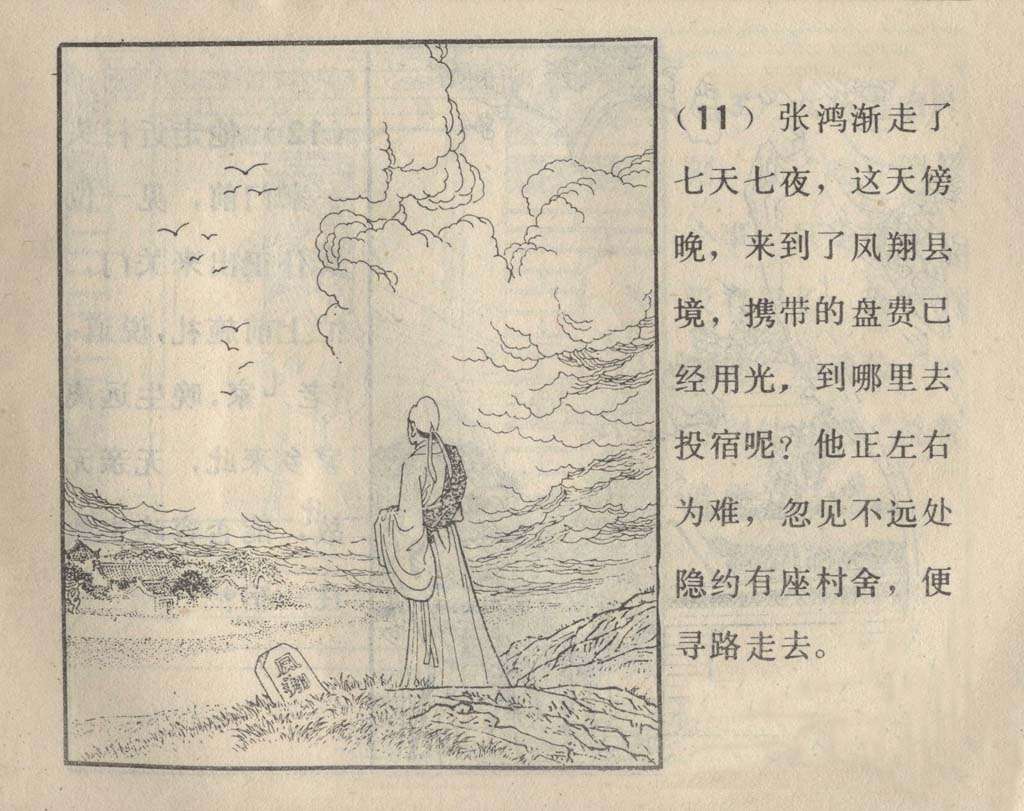 （11）张鸿渐走了
七天七夜，这天傍
晚，来到了凤翔县
境，携带的盘费已
经用光，到哪里去
投宿呢？他正左右
为难，忽见不远处
隐约有座村舍，便
寻路走去。
凤翔